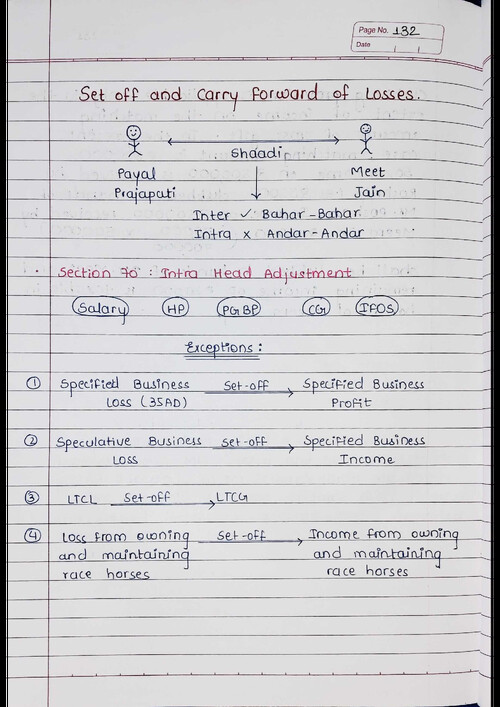 Page No. 132
Date
Set off and Carry Forward of Losses.
Shaadi
Payal Meet
Prajapati Jain
Inter ✓ Bahar-Bahar
Intra x Andar-Andar
Section 70 : Intra Head Adjustment
Salary HP PGBP CG IFOS
Exceptions :
① Specified Business Set-off Specified Business
Loss (35AD) Profit
② Speculative Business Set-off Specified Business
Loss Income
③ LTCL Set-off LTCG
④ Loss from owning Set-off Income from owning
and maintaining and maintaining
race horses race horses